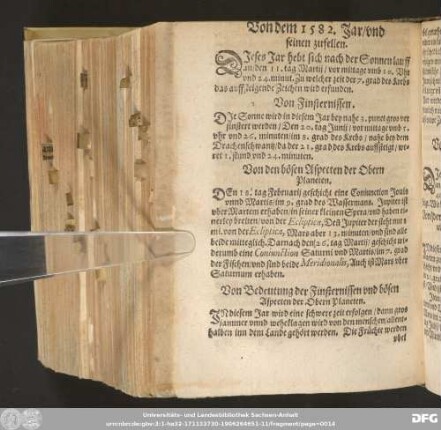 Von dem 1582. Jar/vnd
seinen zufellen.
Dieses Jar hebt sich nach der Sonnen lauff
an/den 11. tag Martij / vor mittage vmb 10. Vhr
vnd 24. minut. Zu welcher zeit der 7. grad des Krebs
das auffsteigende Zeichen wird erfunden.
Von Finsternissen.
DIe Sonne wird in diesem Jar bey nahe 3. punct gros ver
finstert werden / Den 20. tag Junij / vor mittage vmb 5.
vhr vnd 26. minuten/im 8. grad des Krebs / nahe bey den
Drachenschwantz/da der 21. grad des Krebs auffsteigt/ we-
ret 1. stund vnd 24. minuten.
Von den bösen Aspecten der Obern
Planeten.
DEn 18. tag Februarij geschicht eine Coniunction Jouis
vnnd Martis/im 9. grad des Wasserman. Jupiter ist
vber Martem erhaben/in seiner kleinen Spera/vnd haben ei-
nerley breiten/von der Ecliptica, Deñ Jupiter der steht nur
mi. von der Ecliptica, Mars aber 13. minuten/vnd sind alle
beide mitteglich. Darnach den 26. tag Martij/ geschicht wi-
derumb eine Coniunction Saturni vnd Martis/im 7. grad
der Fischen/vnd sind beide Meridionales, Auch ist Mars vber
Saturnum erhaben.
Von Bedeutung der Finsternissen vnd bösen
Aspecten der Obern Planeten.
IN diesem Jar wird eine schwere zeit erfolgen / dann gros
jammer vnnd wehklagen wird von den menschen/allent-
halben inn dem Lande gehört werden. Die Früchte werden
vbel
Universitäts- und Landesbibliothek Sachsen-Anhalt
urn:nbn:de:gbv:3:1-ha32-171133730-1906264651-11/fragment/page=0014
DFG